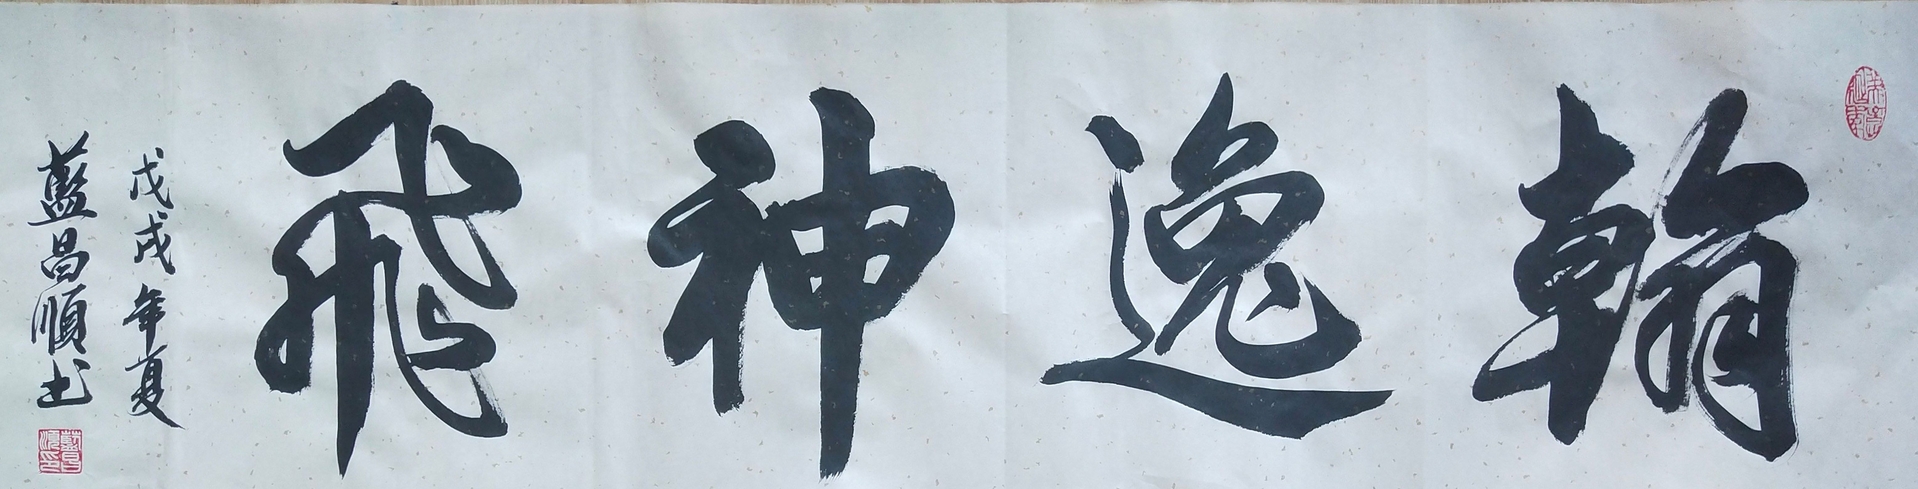 翰逸神飛
戊戌年夏
藍昌順书